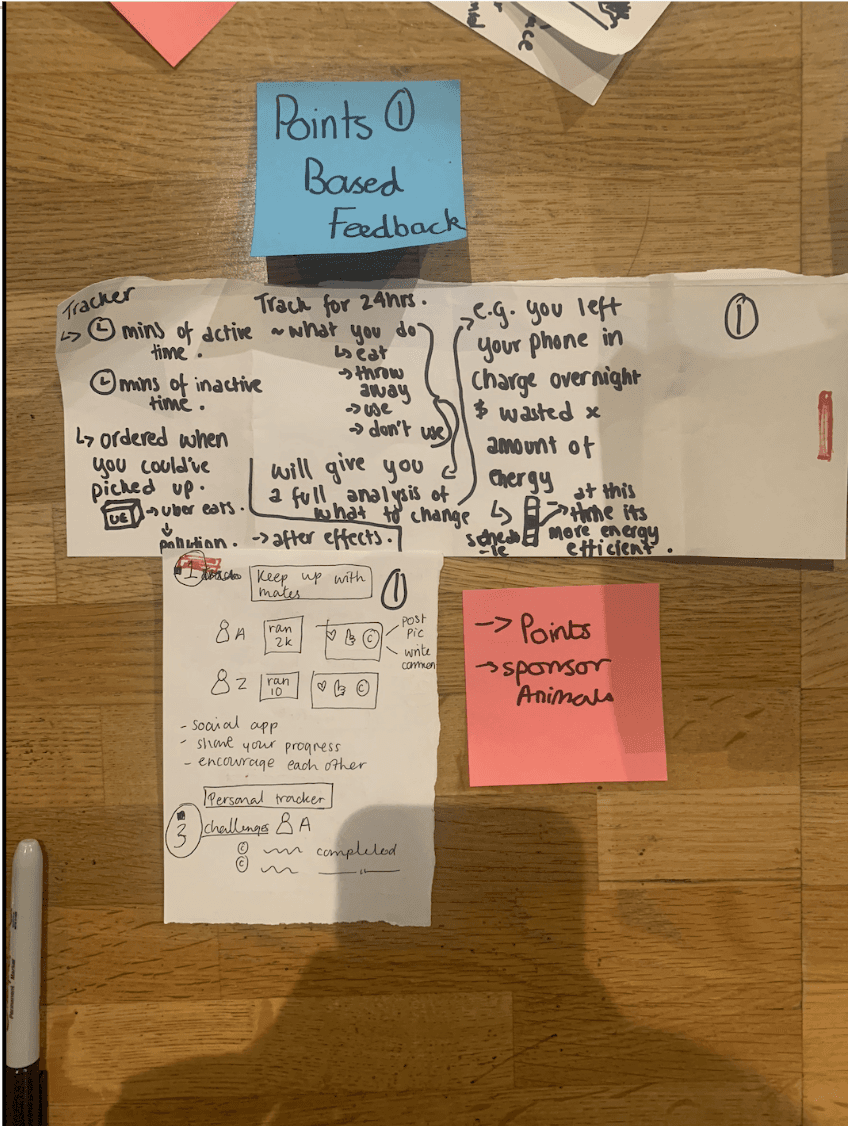 Points ①
Based
Feedback
Tracker
↳ mins of active
time.
mins of inactive
time.
↳ ordered when
you could've
picked up.
UE → uber eats.
↓
pollution.
Track for 24hrs.
~ what you do
↳ eat
→ throw
away
→ use
→ don't use
will give you
a full analysis of
what to change
→ after effects.
→ e.g. you left
your phone in
charge overnight
$ wasted x
amount of
energy
↳ schedu
-le
at this
time its
more energy
efficient.
①
1
Keep up with
mates
①
A
ran
2k
C
post
pic
write
commen
Z
ran
10
C
- social app
- share your progress
- encourage each other
Personal tracker
3
challenges A
C completed
C — " —
→ Points
→ sponsor
Animals